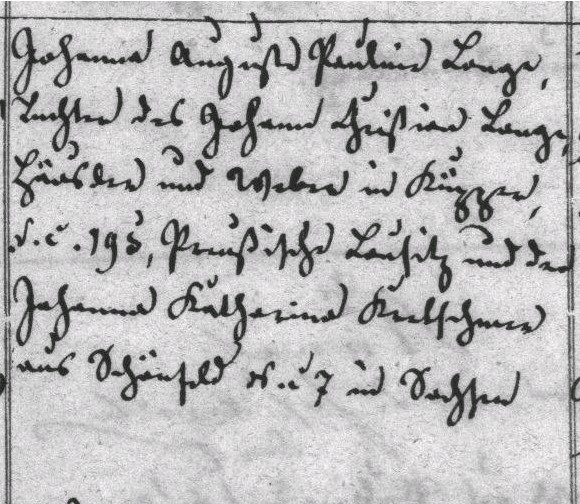 Johanna Auguste Pauline Lange,
Tochter des Johann Christian Lange,
Häusler und Weber in Küpper,
N. C. 195, Preußische Lausitz und der
Johanna Katharina Kretschmer
aus Schönfeld N. C 7 in Sachsen